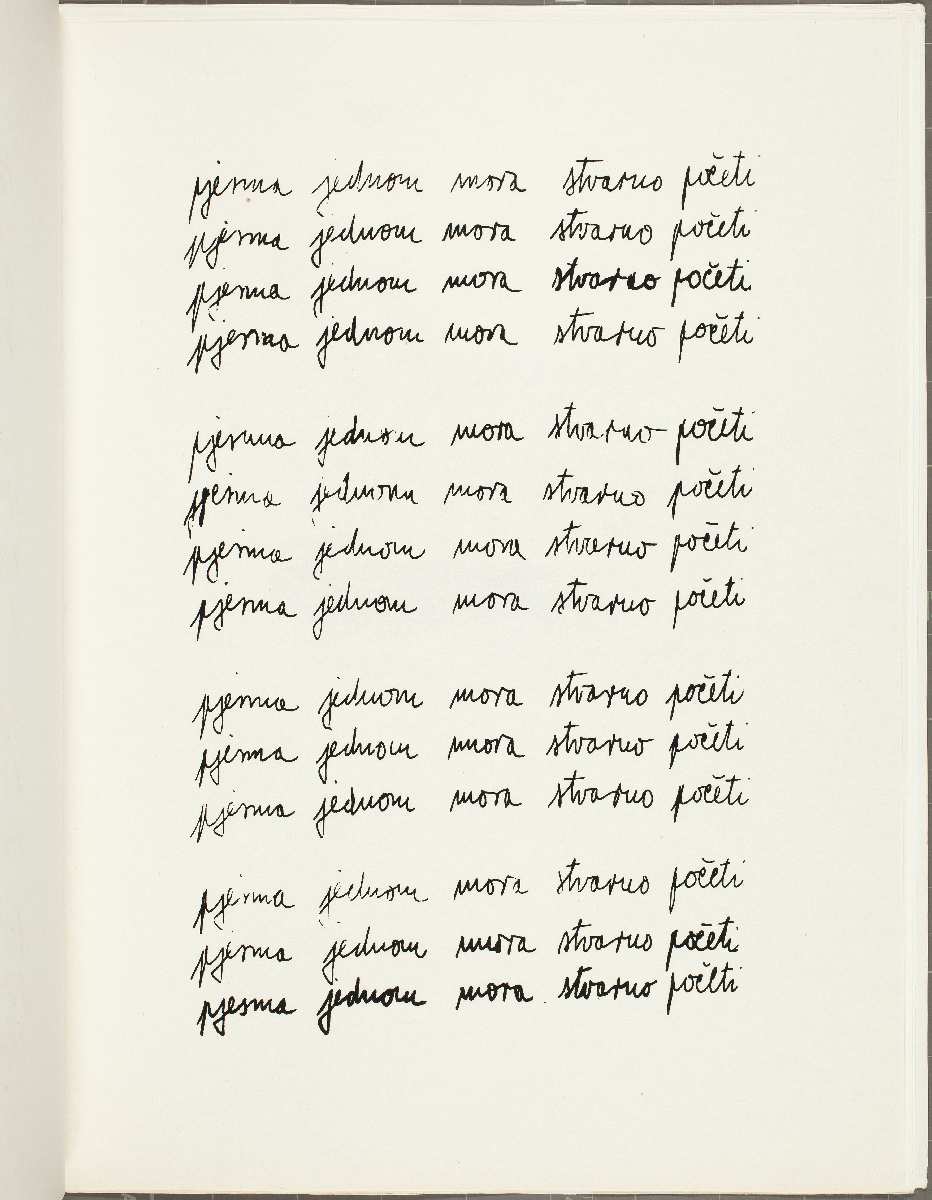 pjesma jednom mora stvarno početi
pjesma jednom mora stvarno početi
pjesma jednom mora stvarno početi
pjesma jednom mora stvarno početi
pjesma jednom mora stvarno početi
pjesma jednom mora stvarno početi
pjesma jednom mora stvarno početi
pjesma jednom mora stvarno početi
pjesma jednom mora stvarno početi
pjesma jednom mora stvarno početi
pjesma jednom mora stvarno početi
pjesma jednom mora stvarno početi
pjesma jednom mora stvarno početi
pjesma jednom mora stvarno početi